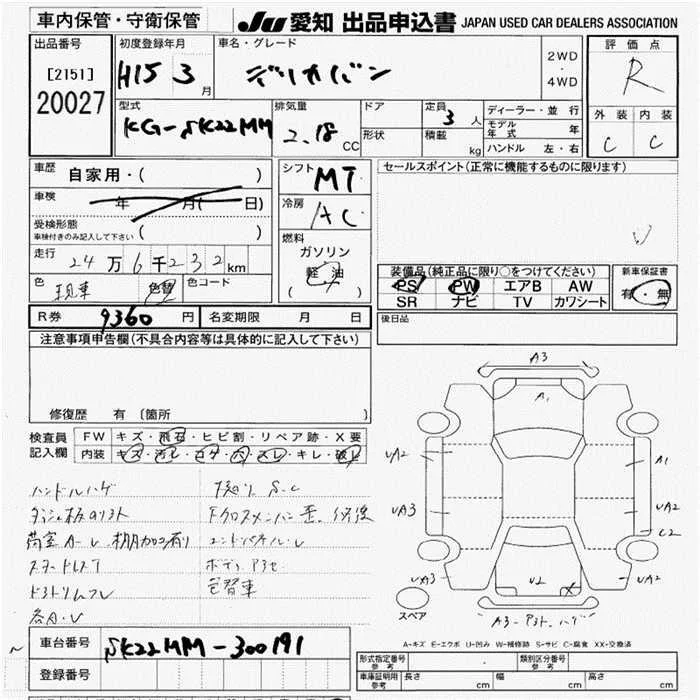 車内保管・守衛保管
JU 愛知 出品申込書 JAPAN USED CAR DEALERS ASSOCIATION
出品番号
[2151]
20027
初度登録年月
H15 3 月
車名・グレード
デリカバン
2WD
・
4WD
評価点
R
型式
KG-SK22MM
排気量
2.18 CC
ドア
形状
定員 3 人
積載 kg
ディーラー・並行
モデル年式 年
ハンドル 左・右
外装 内装
C C
車歴 自家用・( )
車検 年 月( 日)
受検形態
車検付きのみ記入して下さい ( )
走行 24万6千232km
色 現車 色替 色コード
シフト MT
冷房 AC
燃料
ガソリン
軽油
( )
セールスポイント(正常に機能するものに限ります)
装備品(純正品に限り○をつけてください)
PS PW エアB AW
SR ナビ TV カワシート
新車保証書
有・無
R券 9360 円 名変期限 月 日
後日品
注意事項申告欄(不具合内容等は具体的に記入して下さい)
修復歴 有 〔箇所 〕
検査員記入欄
FW キズ・飛石・ヒビ割・リペア跡・X要
内装 キズ・汚レ・コゲ・穴・スレ・キレ・破レ
ハンドルハゲ
ダッシュ板のリフト
荷室A-U
スタッドレス
各A・U
S.C
ボディ
色替車
A3
A1
UA2
A1
UA3
UA2
C2
UA3
U2
X
UA2
A3
スペア
A-キズ E-エクボ U-凹み W-補修跡 S-サビ C-腐食 XX-交換済
車台番号 SK22MM-300191
登録番号
形式指定番号 参考
類別区分番号 参考
車庫証明用 参考 長さ cm 幅 cm 高さ cm